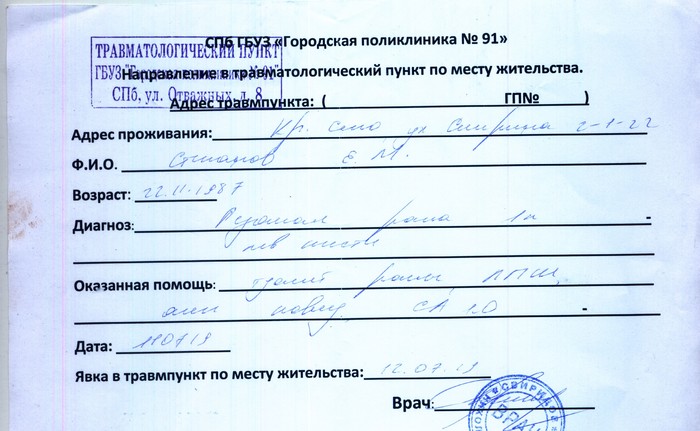 СПб ГБУЗ «Городская поликлиника № 91»
ТРАВМАТОЛОГИЧЕСКИЙ ПУНКТ
ГБУЗ "Городская поликлиника №91"
СПб, ул. Отважных, д. 8
Направление в травматологический пункт по месту жительства.
Адрес травмпункта: ( ГП№ )
Адрес проживания: Кр. Село ул Спирина 2-1-22
Ф.И.О. Степанов Е.М.
Возраст: 22.11.1987
Диагноз: рана 1п -
лев кисти
Оказанная помощь: туалет раны,
асп повяз. -
Дата: 110719
Явка в травмпункт по месту жительства: 12.07.19
Врач:
ВРАЧ